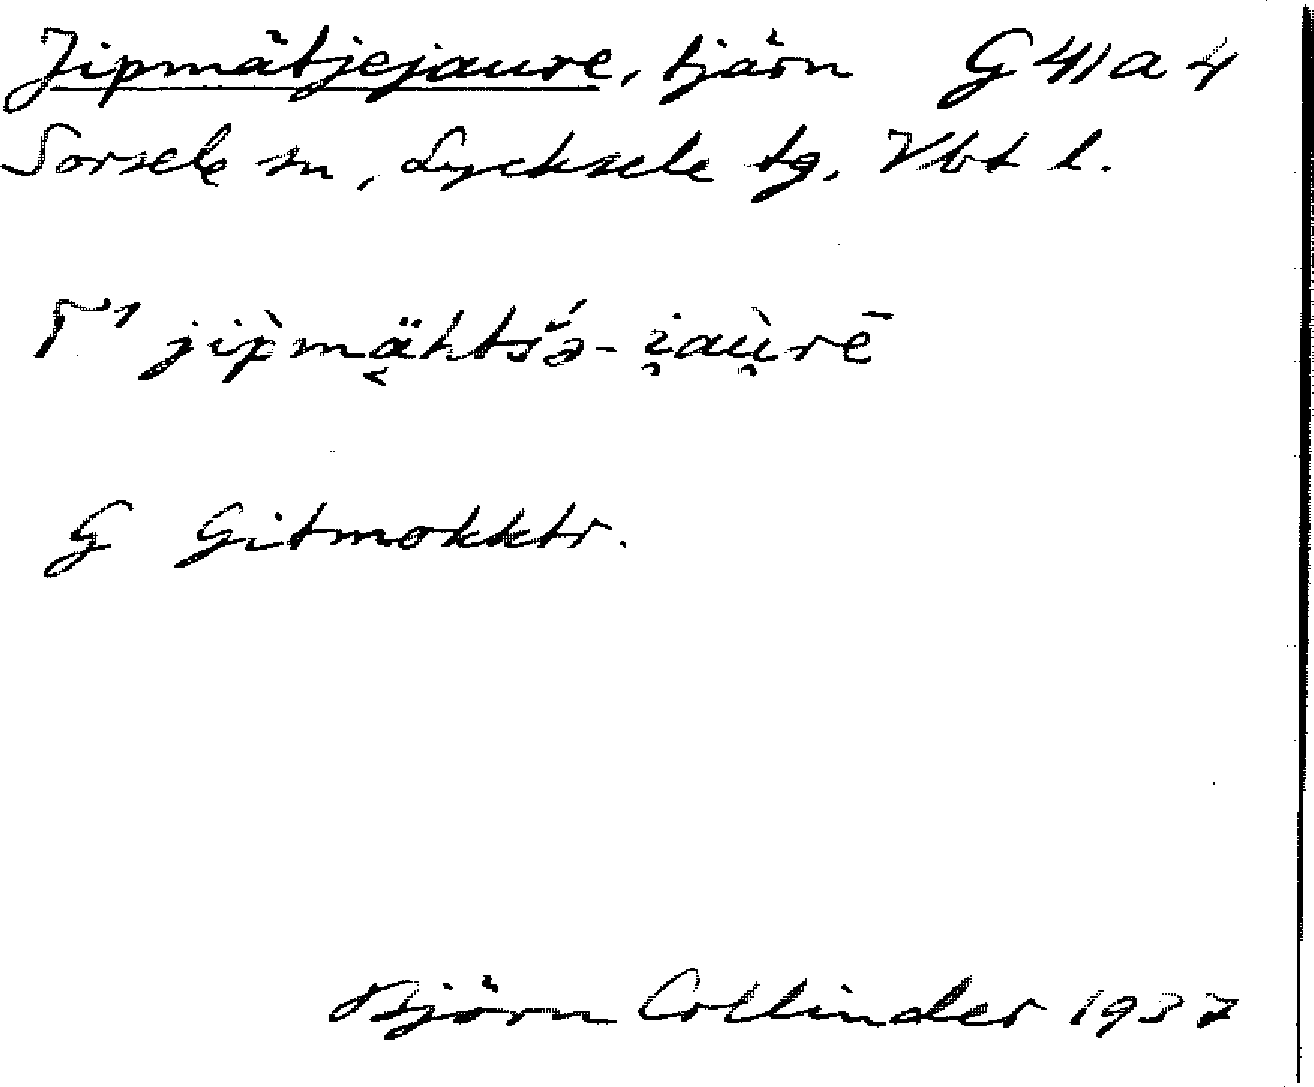 Jipmätjejaure, tjärn G 41 a 4
Sorsele sn, Lycksele tg. Vbt l.
jip̀mä̮htšə́-i̯aù̯rē
G Gitmokktr.
Björn Collinder 1937